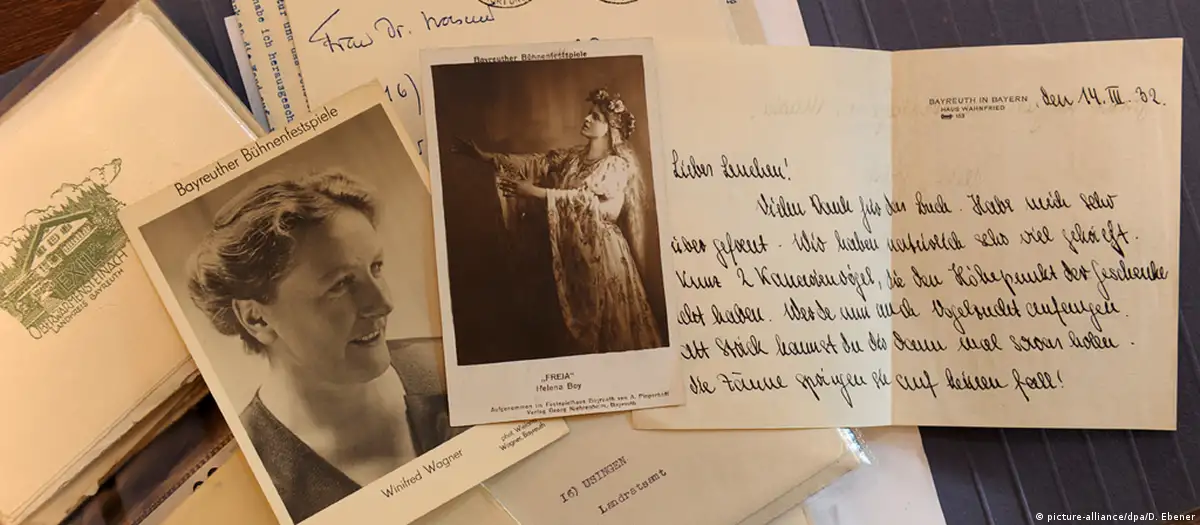 Frau Dr.
16)
Bayreuther Bühnenfestspiele
Winifred Wagner
Wagner, Bayreuth
Bayreuther Bühnenfestspiele
„FREIA“
Helena Boy
Aufgenommen im Festspielhaus Bayreuth von A. Pieperhoff
Verlag Georg Niehrenheim, Bayreuth
EXIL
OBERWARMENSTEINACH
LANDKREIS BAYREUTH
BAYREUTH IN BAYERN
HAUS WAHNFRIED
den 14. III. 32.
Liebes Lenchen!
Vielen Dank für das Buch. Habe mich sehr
über gefreut. Wir haben natürlich sehr viel
2 Kanarienvögel, die den Höhepunkt der Geschenke
haben. Werde nun auch Vogelzucht anfangen.
Stück kannst du dann mal holen.
Die springen auf keinen Fall!
16) USINGEN
Landratsamt
picture-alliance/dpa/D. Ebener